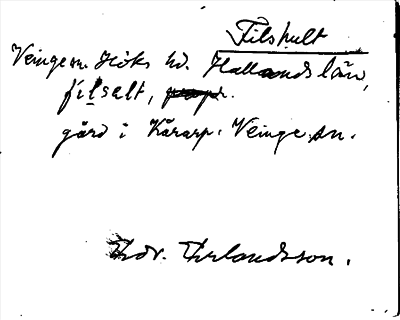 Filshult
Veinge sn. Höks hd. Hallands län,
filsalt,
gård i Kärarp. Veinge sn.
Erlandsson.